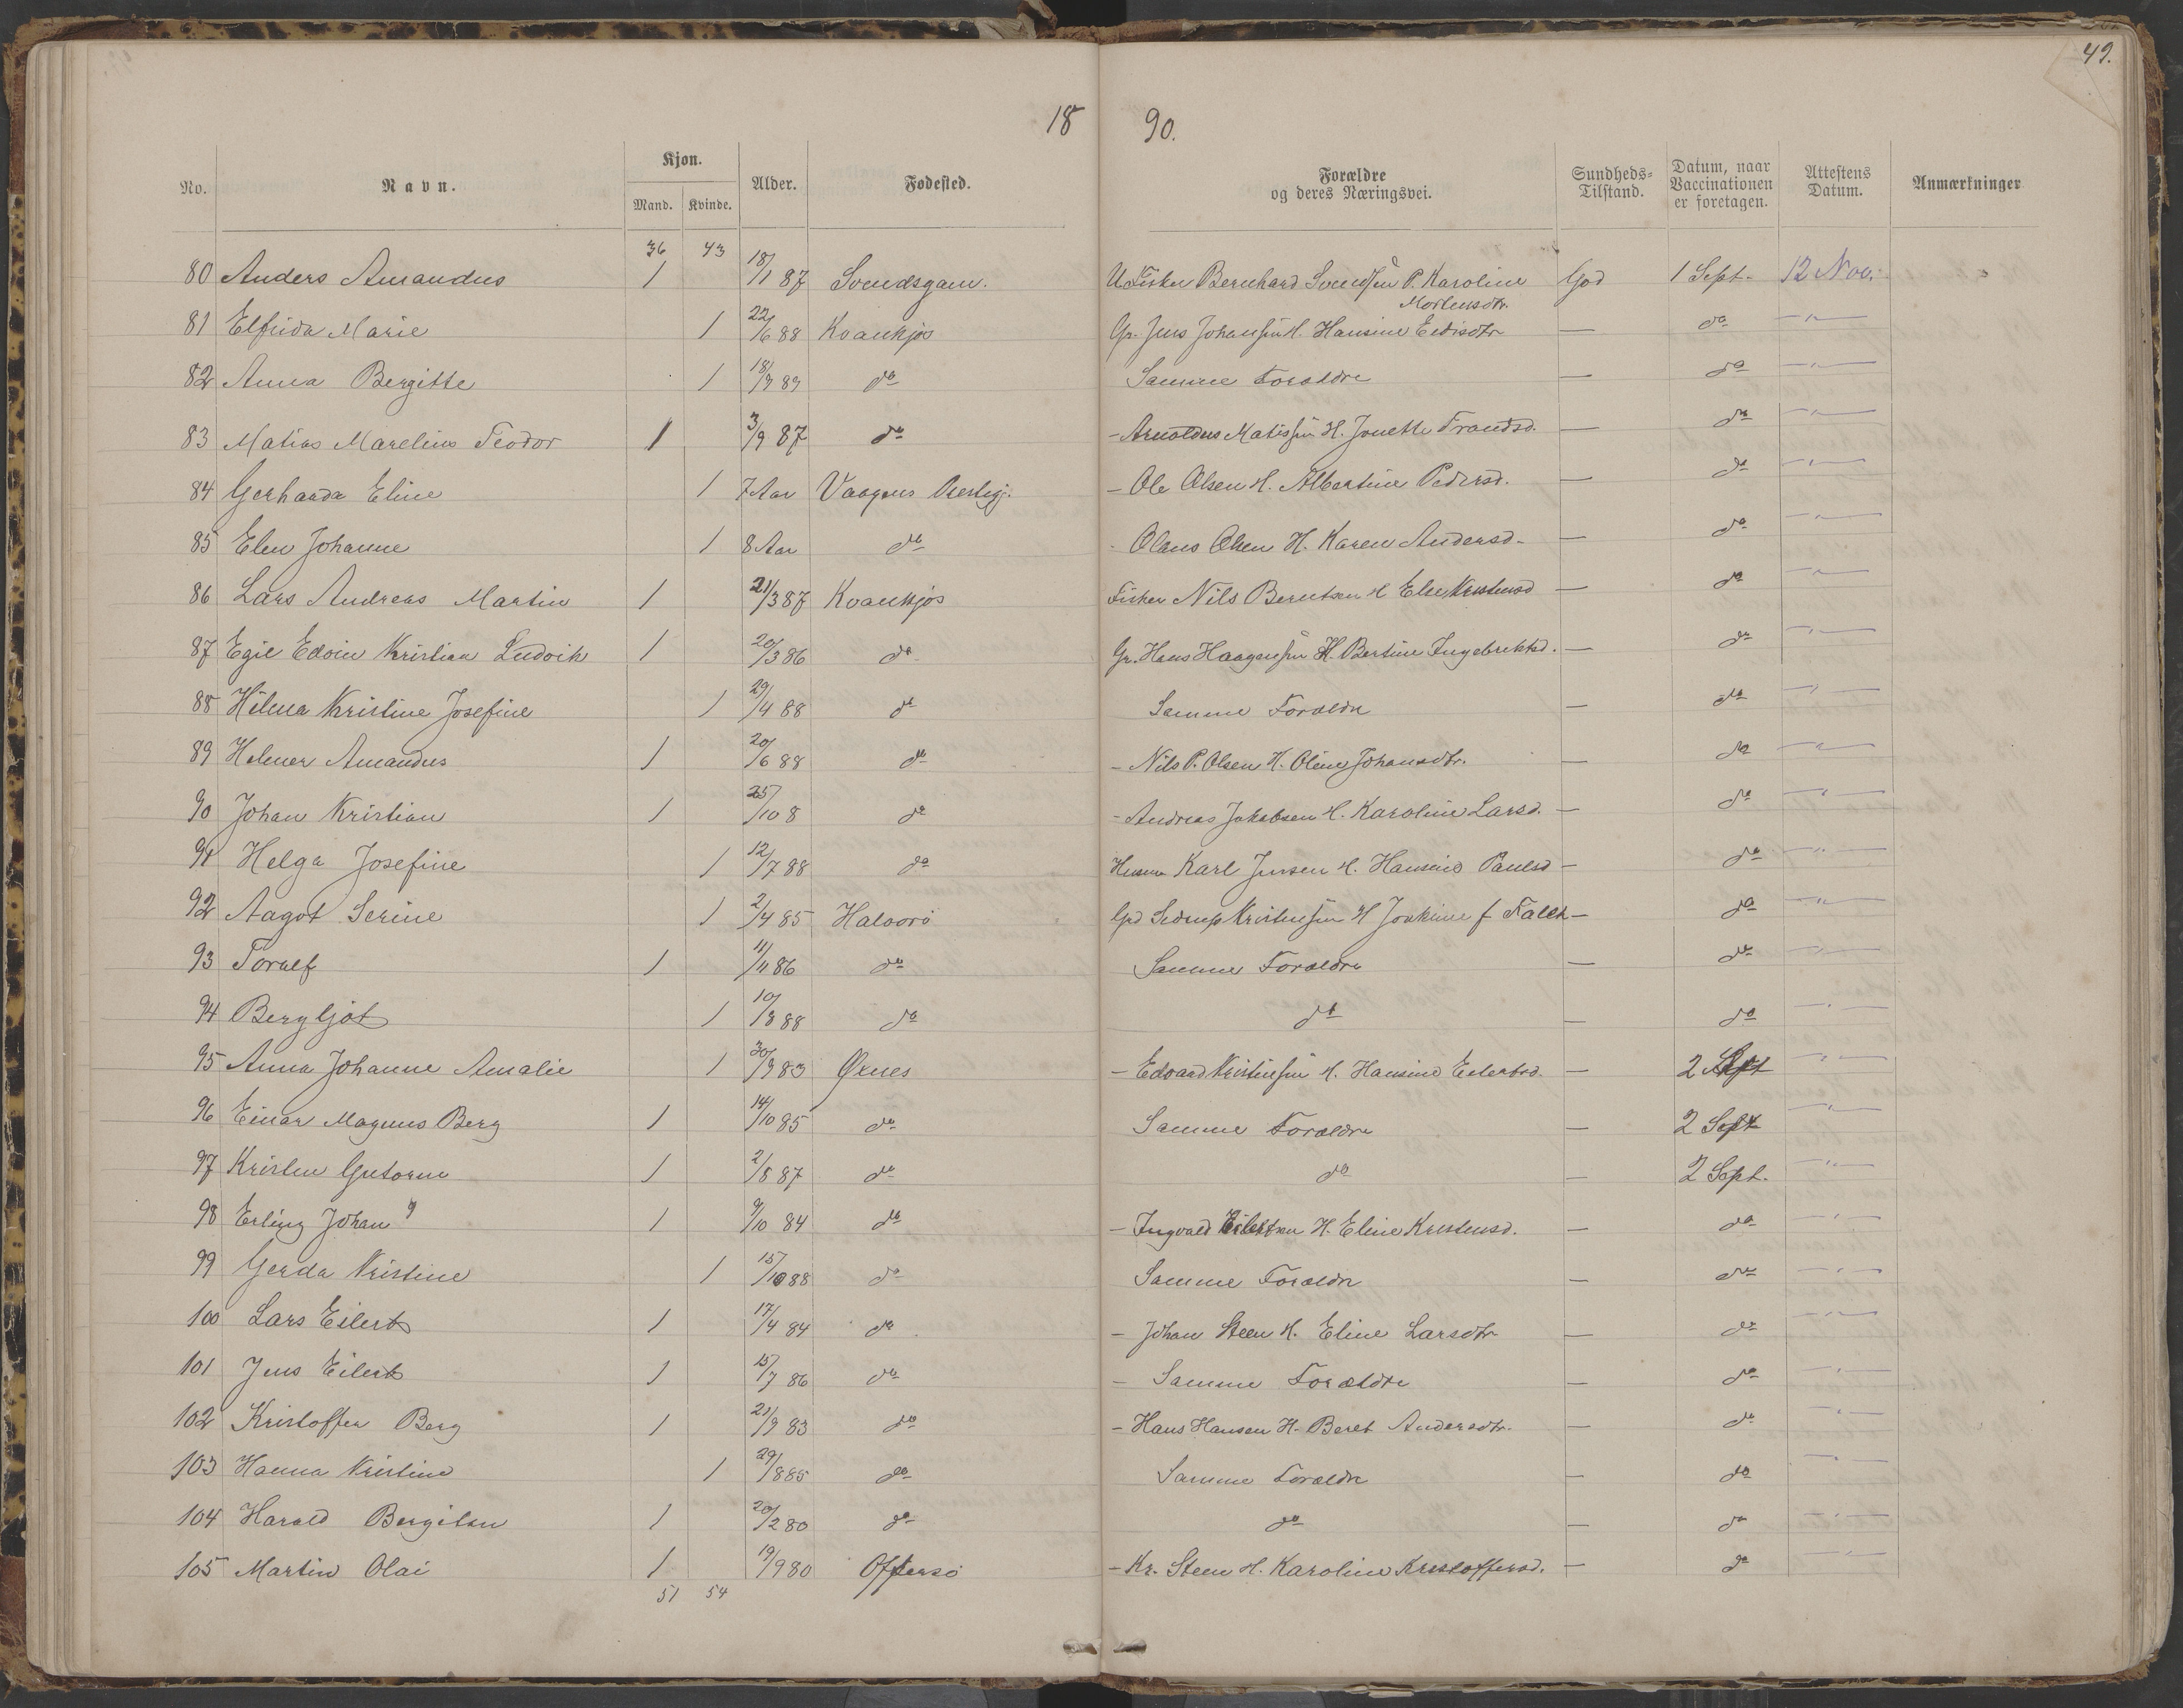 49.
18 90.
No. Navn. Kjøn. Mand. Kvinde. Alder. Fødested. Forældre og deres Næringsvei. Sundheds-Tilstand. Datum, naar Vaccinationen er foretagen. Attestens Datum. Anmærkninger
36 43
80 Anders Amandus 1 18/1 87 Svendsgam. U Fisker Bernhard Svendsen P. Karoline Mortensdtr. God 1 Sept. 12 Nov.
81 Elfrida Marie 1 22/6 88 Kvankjos Gr. Jens Johansen H. Hansine Eedisdtr — do —"—
82 Anna Bergitte 1 18/9 89 do Samme Forældre — do —"—
83 Matias Marelius Teodor 1 3/9 87 do - Arnoldus Matissen H. Jonette Frantsd. — do —"—
84 Gerharda Eline 1 7 Aar Vaagens Præstegj. - Ole Olsen H. Albertine Pedersd. — do —"—
85 Elen Johanne 1 8 Aar do - Olaus Olsen H. Karen Andersd. — do —"—
86 Lars Andreas Martin 1 21/3 87 Kvankjos Fisker Nils Berntsen H Elen Kristensd — do —"—
87 Egil Edvin Kristian Ludvik 1 20/3 86 do Gr. Hans Haagensen H. Bertine Ingebrektsd. — do —"—
88 Hilma Kristine Josefine 1 29/4 88 do Samme Forældre — do —"—
89 Helmer Amandus 1 20/6 88 do - Nils P. Olsen H. Oline Johansdtr. — do —"—
90 Johan Kristian 1 25/10 8 do - Andreas Jakobsen H. Karoline Larsd. — do —"—
91 Helga Josefine 1 12/7 88 do Husm Karl Jensen H. Hansine Paulsd — do —"—
92 Aagot Serine 1 2/4 85 Halvorø Gd Sedrup Kristensen H Joakime f Falch — do —"—
93 Toralf 1 11/11 86 do Samme Forældre — do —"—
94 Bergljot 1 10/3 88 do do — do —"—
95 Anna Johanne Amalie 1 30/9 83 Øxnes - Edvard Kristensen H. Hansine Eilertsd. — 2 Sept —"—
96 Einar Magnus Berg 1 14/10 85 do Samme Forældre — 2 Sept —"—
97 Kristen Gutorm 1 2/8 87 do do — 2 Sept. —"—
98 Erling Johan 1 9/10 84 do - Ingvald Eilertsen H. Eline Kristensd. — do —"—
99 Gerda Kristine 1 15/10 88 do Samme Forældre — do —"—
100 Lars Eilert 1 17/4 84 do - Johan Steen H. Eline Larsdtr — do —"—
101 Jens Eilert 1 15/7 86 do - Samme Forældre — do —"—
102 Kristoffer Berg 1 21/9 83 do - Hans Hansen H. Beret Andersdtr. — do —"—
103 Hanna Kristine 1 29/8 85 do Samme Forældre — do —"—
104 Harald Bergiton 1 20/2 80 do do — do —"—
105 Martin Olai 1 19/9 80 Offersø - Kr. Steen H. Karoline Kristoffersd. — do —"—
51 54